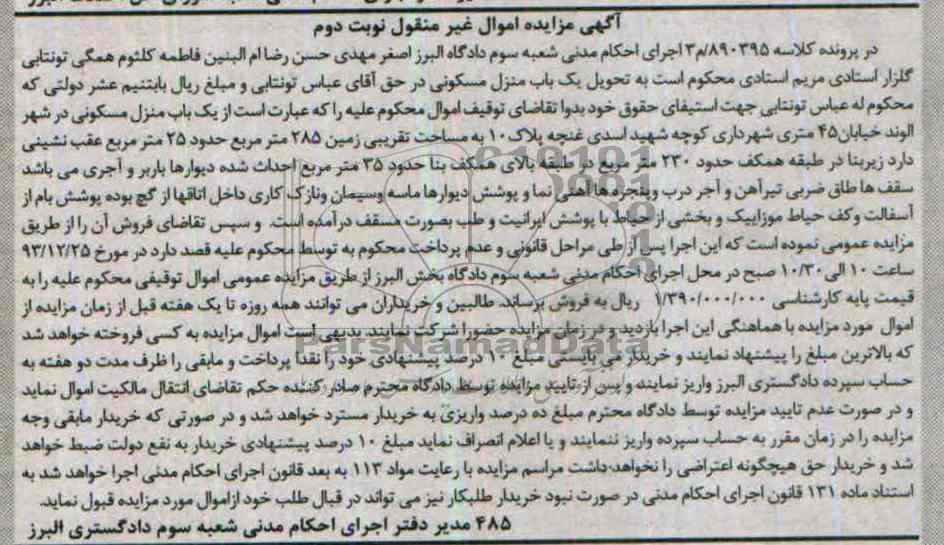 آگهی مزایده اموال غیر منقول نوبت دوم
در پرونده کلاسه ۸۹۰۳۹۵/م۳ اجرای احکام مدنی شعبه سوم دادگاه البرز اصغر مهدی حسن رضا ام البنین فاطمه کلثوم همگی توتنابی
گلزار استادی مریم استادی محکوم است به تحویل یک باب منزل مسکونی در حق آقای عباس توتنابی و مبلغ ریال بابتنیم عشر دولتی که
محکوم له عباس توتنابی جهت استیفای حقوق خود بدوا تقاضای توقیف اموال محکوم علیه را که عبارت است از یک باب منزل مسکونی در شهر
الوند خیابان۴۵ متری شهرداری کوچه شهید اسدی غنچه پلاک۱۰ به مساحت تقریبی زمین ۲۸۵ متر مربع حدود ۲۵ متر مربع عقب نشینی
دارد زیربنا در طبقه همکف حدود ۲۳۰ متر مربع در طبقه بالای همکف بنا حدود ۳۵ متر مربع احداث شده دیوارها باربر و آجری می باشد
سقف ها طاق ضربی تیرآهن و آجر درب وپنجره ها آهنی نما و پوشش دیوارها ماسه وسیمان ونازک کاری داخل اتاقها از گچ بوده پوشش بام از
آسفالت وکف حیاط موزاییک و بخشی از حیاط با پوشش ایرانیت و طب بصورت مسقف درآمده است. و سپس تقاضای فروش آن را از طریق
مزایده عمومی نموده است که این اجرا پس از طی مراحل قانونی و عدم پرداخت محکوم به توسط محکوم علیه قصد دارد در مورخ ۹۳/۱۲/۲۵
ساعت ۱۰ الی ۱۰/۳۰ صبح در محل اجرای احکام مدنی شعبه سوم دادگاه بخش البرز از طریق مزایده عمومی اموال توقیفی محکوم علیه را به
قیمت پایه کارشناسی ۱/۳۹۰/۰۰۰/۰۰۰ ریال به فروش برساند. طالبین و خریداران می توانند همه روزه تا یک هفته قبل از زمان مزایده از
اموال مورد مزایده با هماهنگی این اجرا بازدید و در زمان مزایده حضورا شرکت نمایند. بدیهی است اموال مزایده به کسی فروخته خواهد شد
که بالاترین مبلغ را پیشنهاد نمایند و خریدار می بایستی مبلغ ۱۰ درصد پیشنهادی خود را نقدا پرداخت و مابقی را ظرف مدت دو هفته به
حساب سپرده دادگستری البرز واریز نمایند و پس از تایید مزایده توسط دادگاه محترم صادرکننده حکم تقاضای انتقال مالکیت اموال نماید
و در صورت عدم تایید مزایده توسط دادگاه محترم مبلغ ده درصد واریزی به خریدار مسترد خواهد شد و در صورتی که خریدار مابقی وجه
مزایده را در زمان مقرر به حساب سپرده واریز ننمایند و یا اعلام انصراف نماید مبلغ ۱۰ درصد پیشنهادی خریدار به نفع دولت ضبط خواهد
شد و خریدار حق هیچگونه اعتراضی را نخواهد داشت مراسم مزایده با رعایت مواد ۱۱۳ به بعد قانون اجرای احکام مدنی اجرا خواهد شد به
استناد ماده ۱۳۱ قانون اجرای احکام مدنی در صورت نبود خریدار طلبکار نیز می تواند در قبال طلب خود ازاموال مورد مزایده قبول نماید.
۴۸۵ مدیر دفتر اجرای احکام مدنی شعبه سوم دادگستری البرز
ParsNamadData